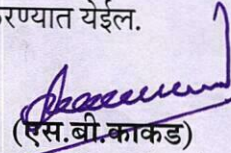 रण्यात येईल.
(एस.बी.काकड)